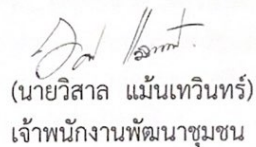 (นายวิสาล แม้นเทวินทร์)
เจ้าพนักงานพัฒนาชุมชน